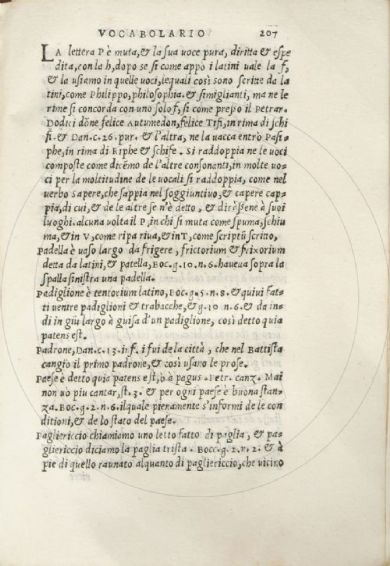 VOCABOLARIO 207
LA lettera P è muta, & la sua voce pura, diritta & espe
dita, con la h, dopo se si come appò i latini uale la f,
& la usiamo in quelle voci, lequali così sono scritte da la
tini, come Philippo, philosophia. & simiglianti, ma ne le
rime si concorda con uno solo f, si come presso il Petrar.
Dodici dõne felice Autumedon, felice Tifi, in rima di schi
fi. & Dan. c. 26. pur. & l'altra, ne la uacca entrò Pasi-
phe, in rima di Riphe & schife. Si raddoppia ne le uoci
composte come dirẽmo de l'altre consonanti, in molte uo-
ci per la moltitudine de le uocali si raddoppia, come nel
uerbo Sapere, che sappia nel soggiuntiuo, & capere cap-
pia, di cui, & de le altre se n'è detto, & dirèssene à suoi
luoghi. alcuna uolta il P, in chi si muta come spuma, schiu
ma, & in V, come ripa riua, & in T, come scriptũ scritto,
Padella è uaso largo da frigere, frictorium & frixorium
detta da latini, & patella, Boc. g. 10. n. 6. haueua sopra la
spalla sinistra una padella.
Padiglione è tentorium latino, Boc. g. 5. n. 8. & quiui fat-
ti uentre padiglioni & trabacche, & g. 10. n. 6. & da in-
di in giù largo à guisa d'un padiglione, così detto quia
patens est.
Padrone, Dan. c. 13. if. i fui de la città, che nel Battista
cangio il primo padrone, & così usano le prose.
Paese è detto quia patens est, ò à pagus. Petr. canz. Mai
non uò piu cantar, st. 3. & per ogni paese è buona stan-
za. Boc. g. 2. n. 6. ilquale pienamente s'informi de le con
ditioni, & de lo stato del paese.
Pagliericcio chiamiamo uno letto fatto di paglia, & pa-
gliericcio diciamo la paglia trista. Bocc. g. 2. n. 2. & à
pie di quello raunato alquanto di pagliericcio, che uicino